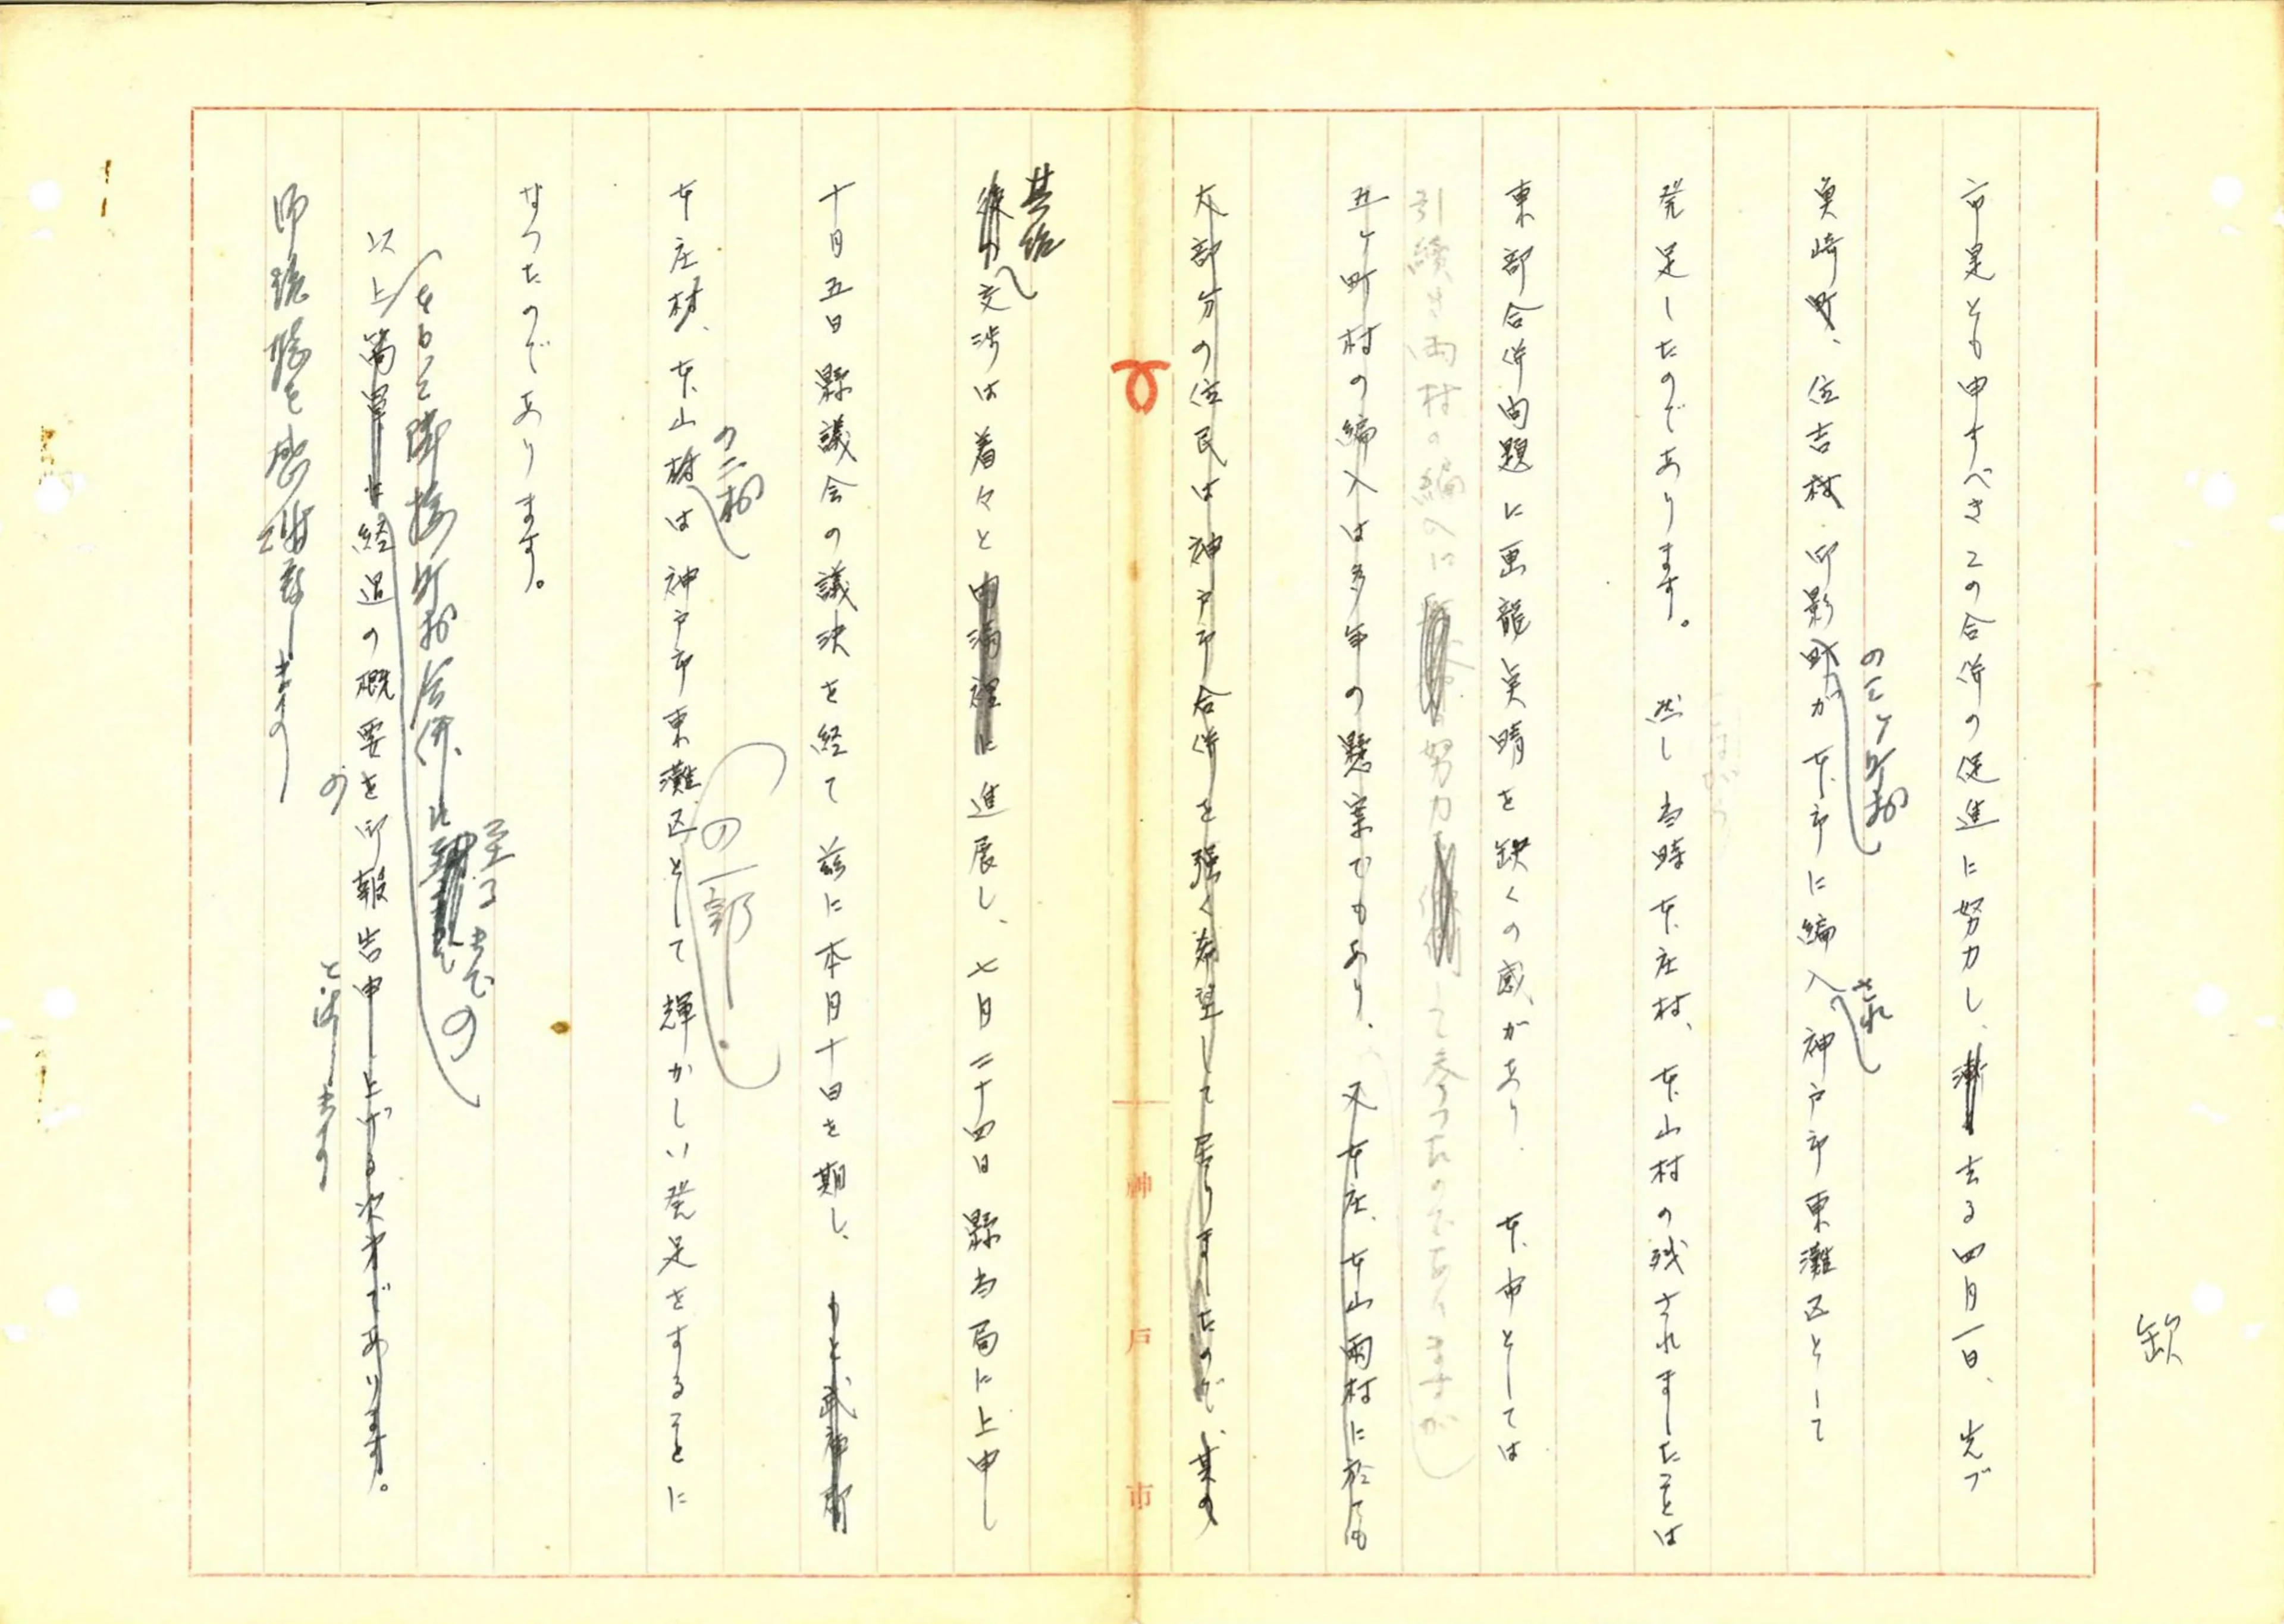 欽
市是とも申すべきこの合併の促進に努力し、漸く去る四月一日、先づ
のミケ町村
され
魚崎町、住吉村、御影町が本市に編入、神戸市東灘区として
発足したのであります。然し当時本庄村、本山村の残されましたことは
ながら
東部合併問題に画龍点晴を欠くの感があり、本市としては
引續き両村の編入に努力して参つたのでありますが
五ヶ町村の編入は多年の懸案でもあり、又本庄、本山両村に於ても
大部分の住民は神戸市合併を強く希望して居りましたので、其の
神戸市
其後
後の交渉は着々と円満裡に進展し、七月二十四日縣当局に上申し
十月五日縣議会の議決を経て茲に本月十日を期し、もと武庫郡
の二村
の一部
本庄村、本山村は神戸市東灘区として輝かしい発足をすることに
なつたのであります。
至るまでの
をもつて隣接町村合併に
以上簡單に経過の概要を御報告申上げる次第であります。
の
と致します
御清聴を感謝致します